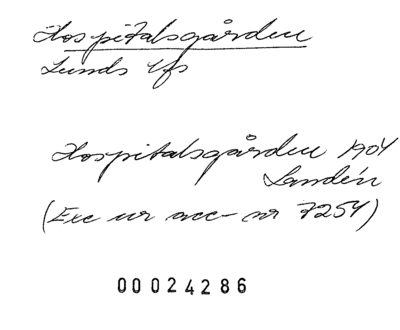 Hospitalsgården
Lunds lfs
Hospitalsgården 1904
Landén
(Exc ur acc- nr 7254)
00024286